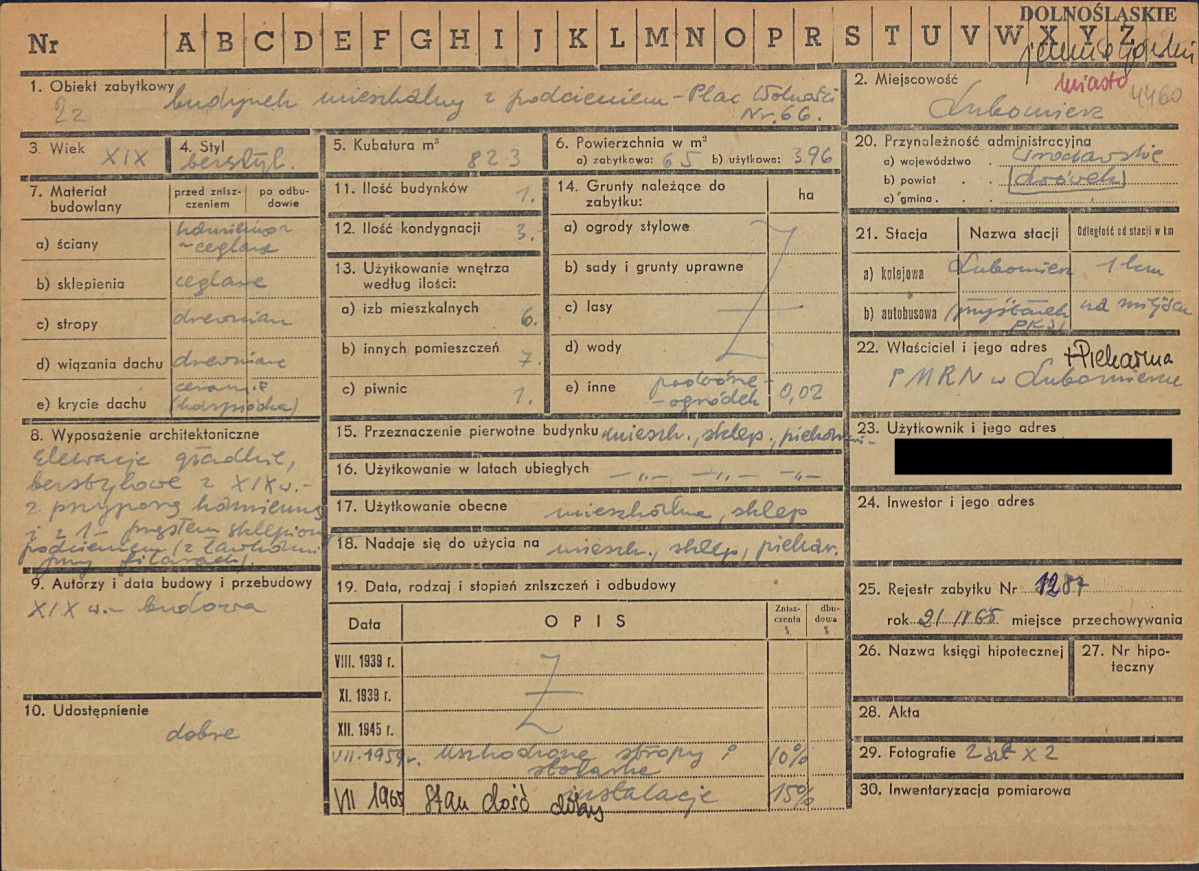 DOLNOŚLĄSKIE
Nr A B C D E F G H I J K L M N O P R S T U V W X Y Z
miasto 4460
1. Obiekt zabytkowy budynek mieszkalny z podcieniem - Plac Wolności
Nr. 66.
22
2. Miejscowość
Lubomierz
3. Wiek XIX
4. Styl
bezstyl.
5. Kubatura m³ 823
6. Powierzchnia w m²
a) zabytkowa: 65 b) użytkowa: 396
7. Materiał budowlany
przed zniszczeniem
po odbudowie
a) ściany kamienno-
-ceglane
b) sklepienia ceglane
c) stropy drewnian
d) wiązania dachu drewniane
e) krycie dachu ceramif
(karpiówka)
8. Wyposażenie architektoniczne
Elewacje gładkie,
bezstylowe z XIX w. -
z przyporą kamienną
i z 1- przęsłem sklepion
podcieniem (z ławkami
przy filarach).
9. Autorzy i data budowy i przebudowy
XIX w. - budowa
10. Udostępnienie
dobre
11. Ilość budynków 1.
12. Ilość kondygnacji 3.
13. Użytkowanie wnętrza
według ilości:
a) izb mieszkalnych 6.
b) innych pomieszczeń 7.
c) piwnic 1.
14. Grunty należące do
zabytku:
ha
a) ogrody stylowe
b) sady i grunty uprawne
c) lasy
d) wody
e) inne podwórze-
-ogródek 0,02
15. Przeznaczenie pierwotne budynku mieszk., sklep., piekarni-
16. Użytkowanie w latach ubiegłych -"- -"- -"-
17. Użytkowanie obecne mieszkalne, sklep
18. Nadaje się do użycia na mieszk., sklep, piekar.
19. Data, rodzaj i stopień zniszczeń i odbudowy
Data
OPIS
Zniszczenia %
dbudowa %
VIII. 1939 r.
XI. 1939 r.
XII. 1945 r.
VII. 1959 r. uszkodzone stropy i 10%
stolarka
instalacje 15%
VII 1965 Stan dość dobry
20. Przynależność administracyjna
a) województwo . wrocławskie
b) powiat . . lwówek
c) gmina . .
21. Stacja
Nazwa stacji
Odległość od stacji w km
a) kolejowa Lubomierz 1 km
b) autobusowa przystanek na miejscu
PKS
22. Właściciel i jego adres + Piekarnia
PMRN w Lubomierzu
23. Użytkownik i jego adres
24. Inwestor i jego adres
25. Rejestr zabytku Nr 1287
rok 21 IV 65 miejsce przechowywania
26. Nazwa księgi hipotecznej
27. Nr hipo-
teczny
28. Akta
29. Fotografie 2 szt x 2
30. Inwentaryzacja pomiarowa